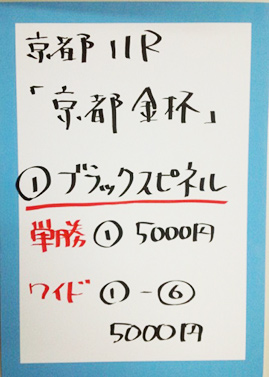 京都11R
「京都金杯」
①ブラックスピネル
単勝 ① 5000円
ワイド ①-⑥
5000円